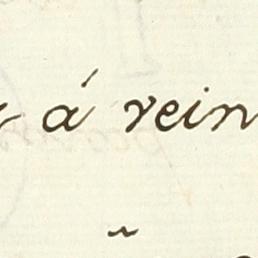 á vein